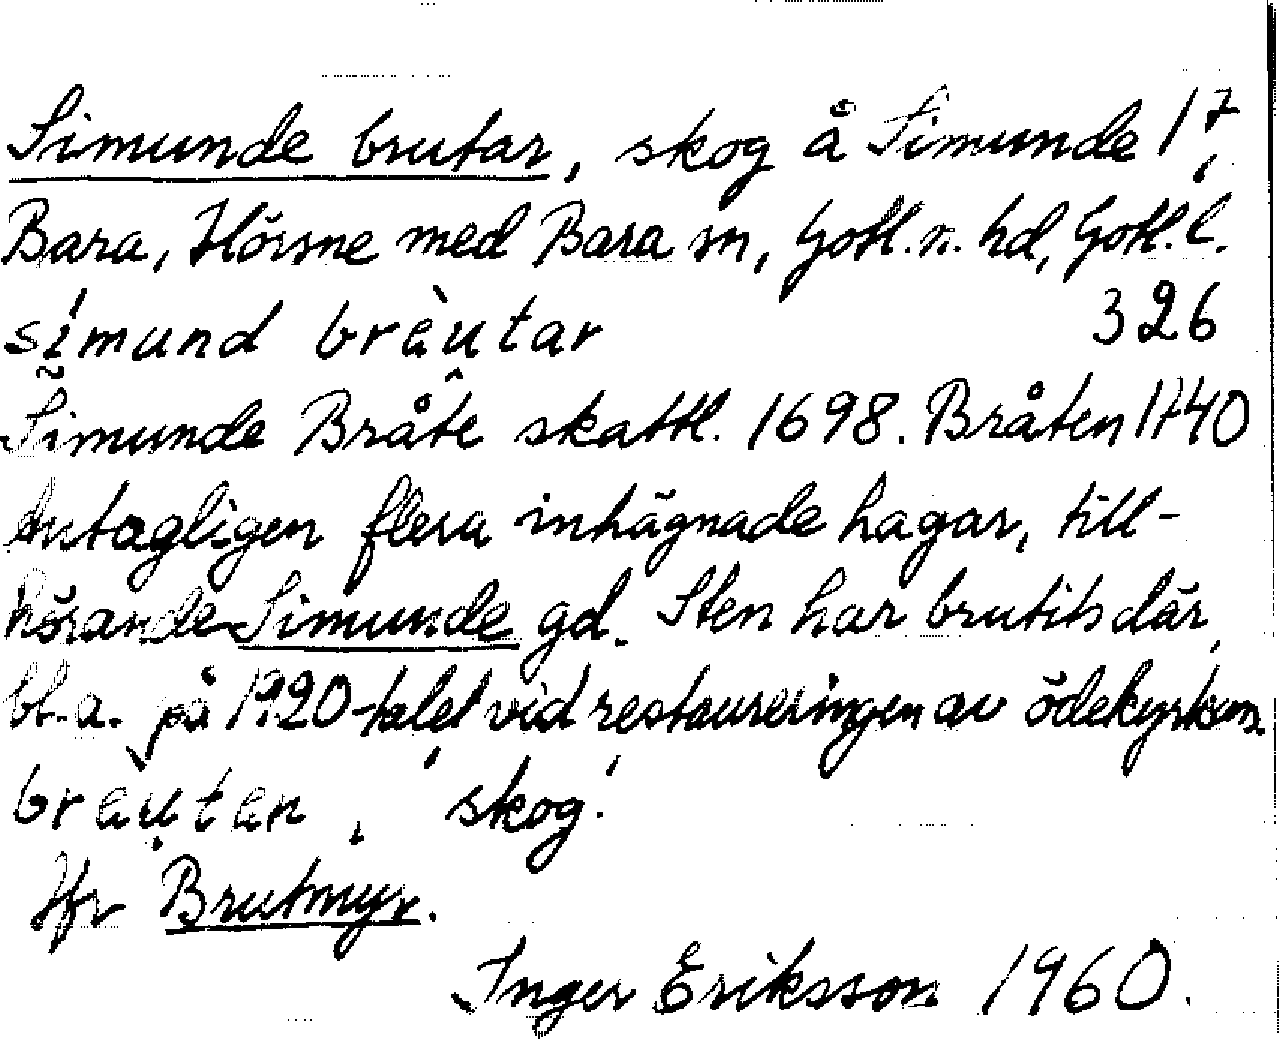 Simunde brutar, skog å Simunde 17,
Bara, Hörsne med Bara sn, Gotl. n. hd, Gotl. l.
simund bräutar 326
Simunde Bråte skattl. 1698. Bråten 1740
Antagligen flera inhägnade hagar, till-
hörande Simunde gd. Sten har brutits där,
bl.a. på 1920-talet vid restaureringen av ödekyrkan.
bräutan, skog.
Jfr Brutmyr.
Inger Eriksson 1960.